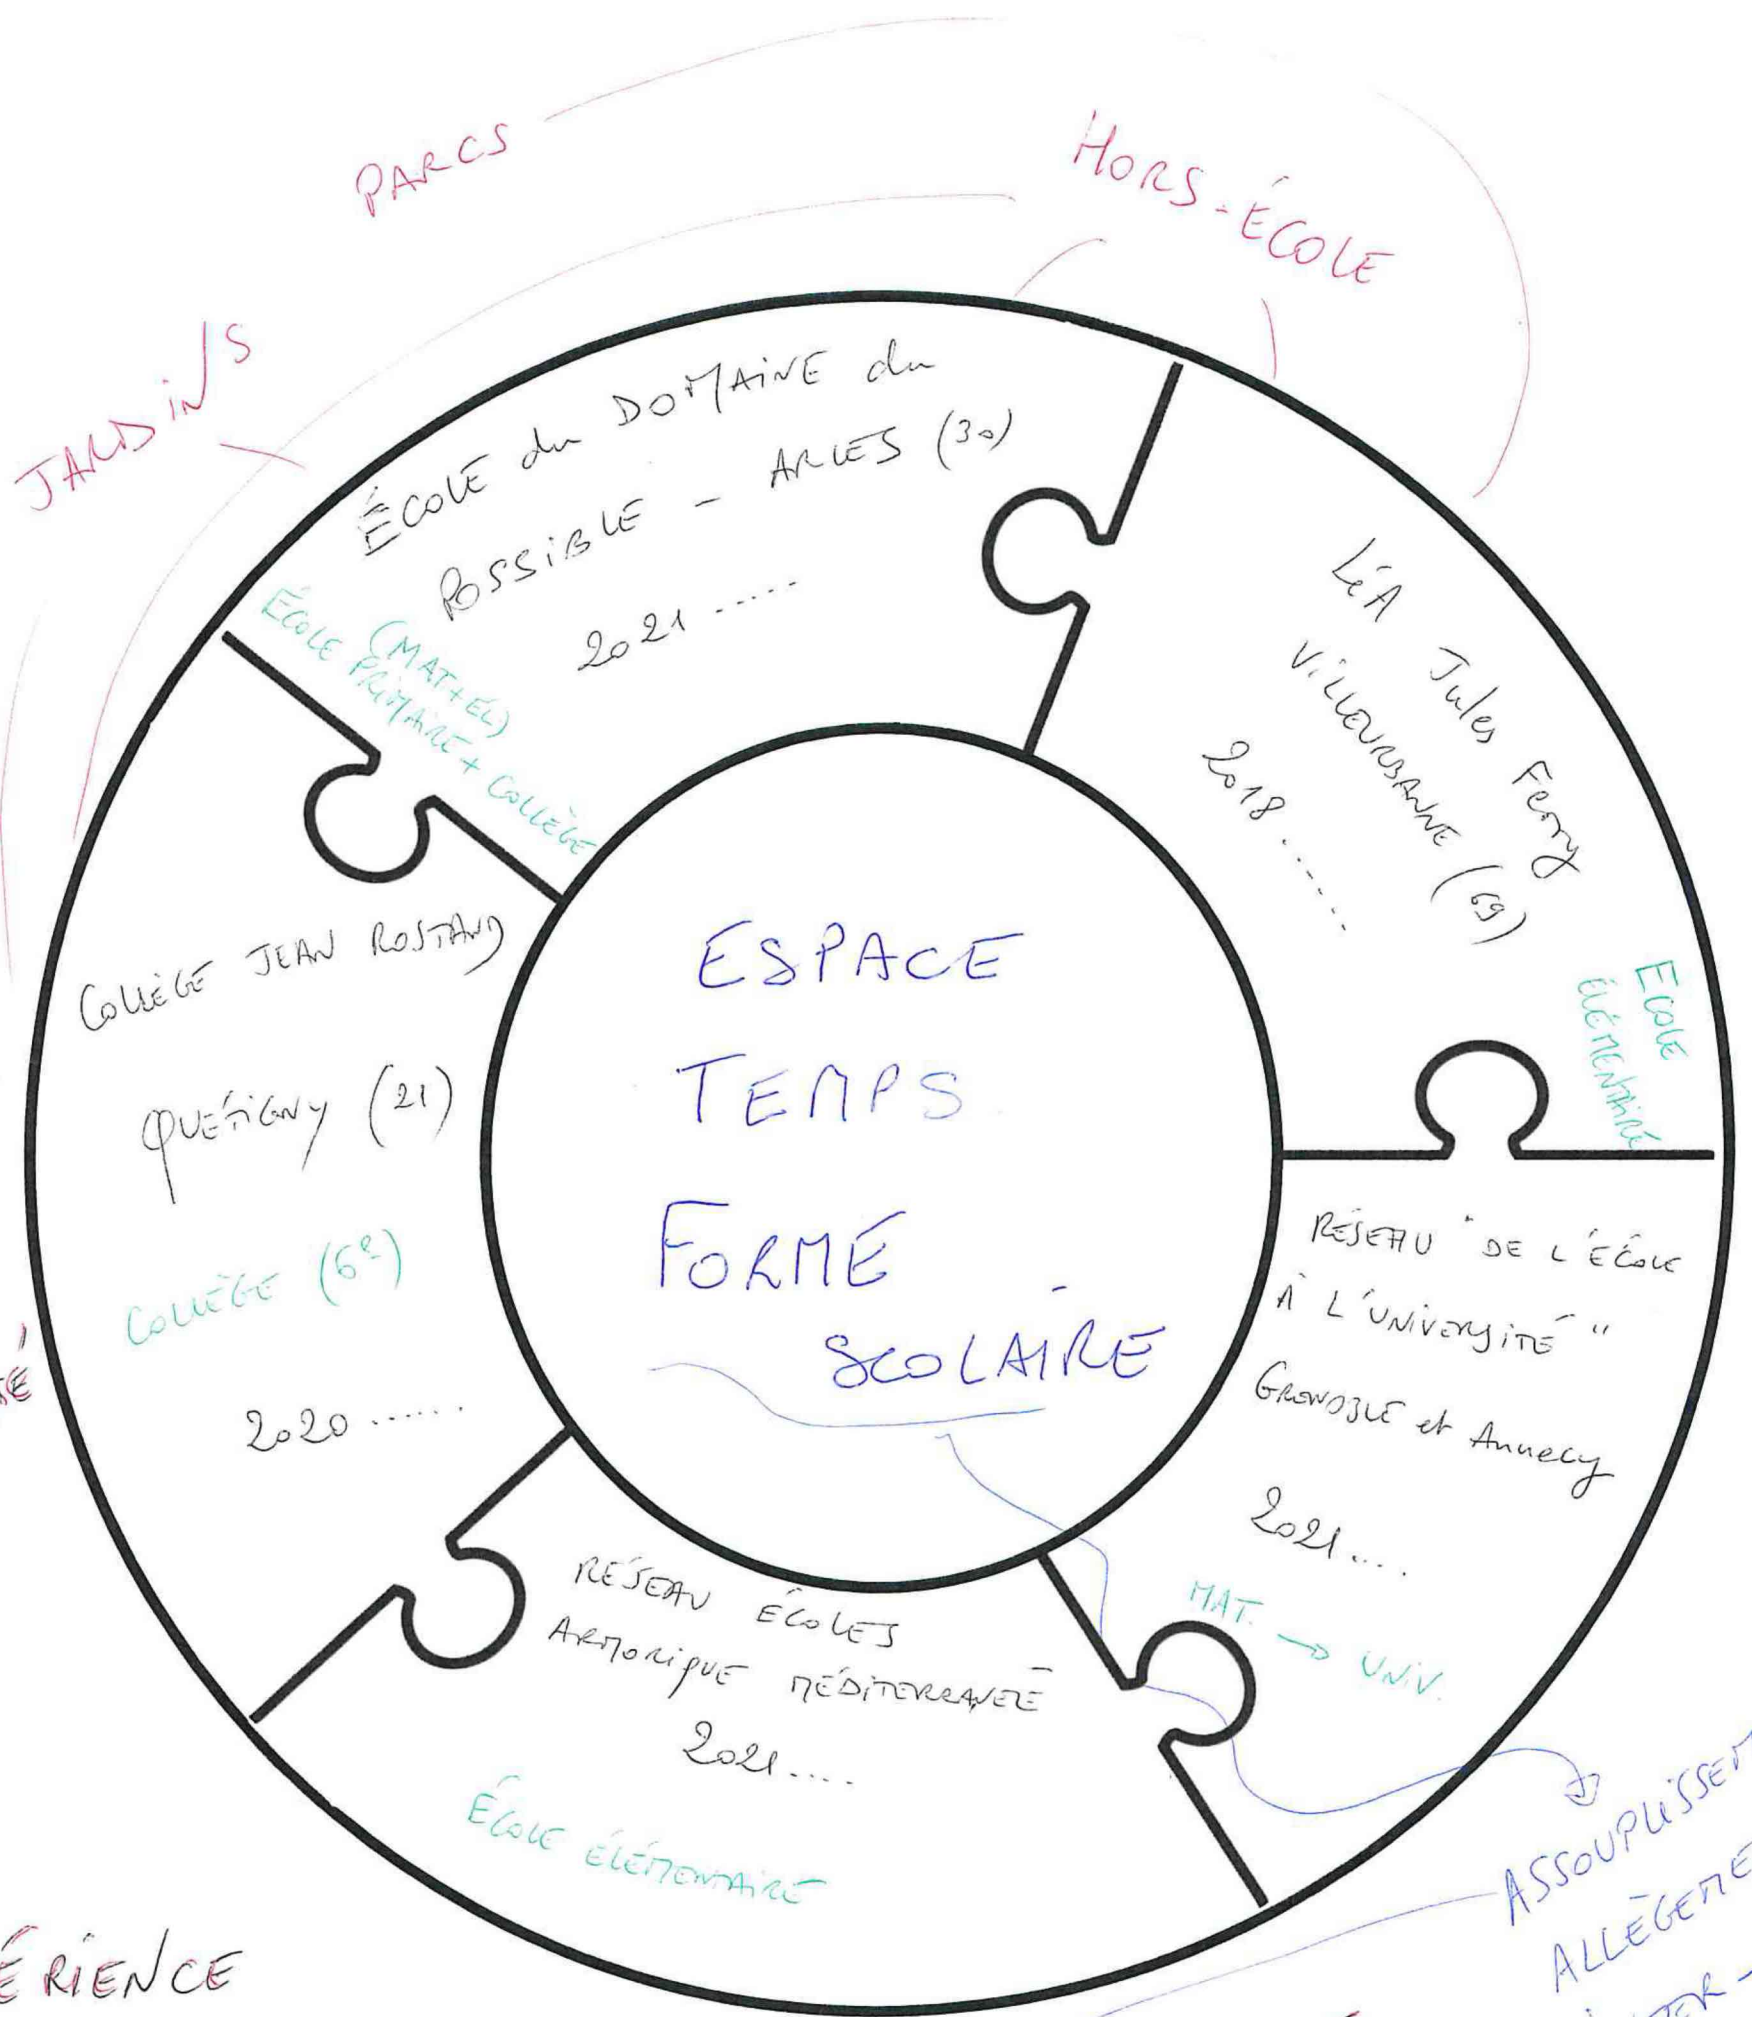 PARCS
HORS-ÉCOLE
JARDINS
ÉCOLE du DOMAINE du
POSSIBLE - ARLES (30)
2021 ......
ÉCOLE PRIMAIRE + COLLÈGE
(MAT+ÉL)
LéA Jules Ferry
VILLEURBANNE (69)
2018 ......
ECOLE
ÉLÉMENTAIRE
COLLÈGE JEAN ROSTAND
QUÉTIGNY (21)
COLLÈGE (6e)
2020 ......
ESPACE
TEMPS
FORME
SCOLAIRE
RÉSEAU "DE L'ÉCOLE
À L'UNIVERSITÉ"
GRENOBLE et Annecy
2021 ....
MAT. → UNIV.
RÉSEAU ÉCOLES
ARMORIQUE MÉDITERRANÉE
2021 ....
ÉCOLE ÉLÉMENTAIRE
ÉRIENCE
ASSOUPLISSEM
ALLÈGEME